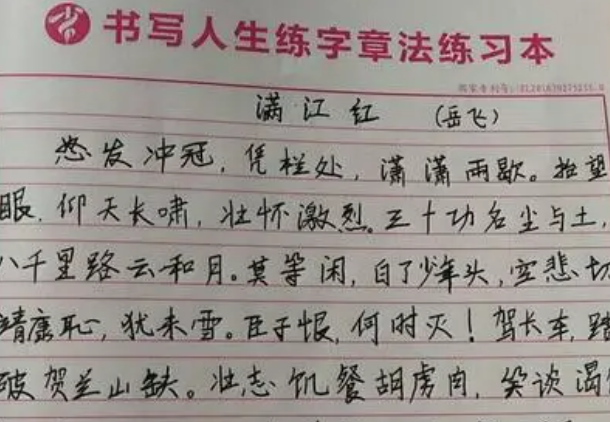 书写人生练字章法练习本
满江红 (岳飞)
怒发冲冠,凭栏处,潇潇雨歇。抬望
眼,仰天长啸,壮怀激烈。三十功名尘与土,
八千里路云和月。莫等闲,白了少年头,空悲切
靖康耻,犹未雪。臣子恨,何时灭!驾长车,踏
破贺兰山缺。壮志饥餐胡虏肉,笑谈渴